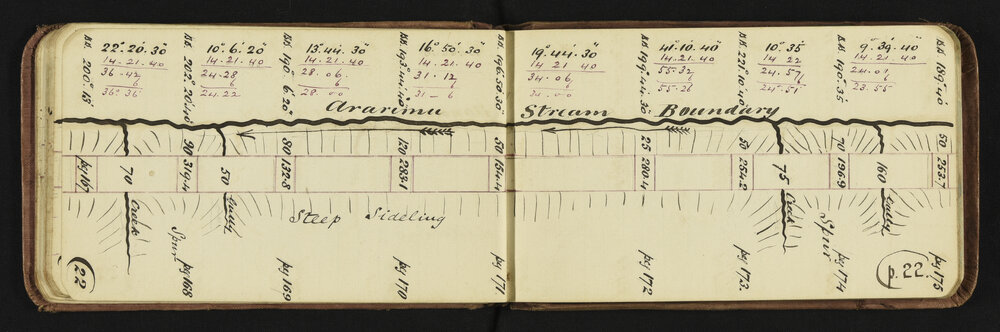 22°. 20'. 30"
14. 21. 40
36. 42
6
36°. 36
10°. 6'. 20"
14. 21. 40
24. 28
6
24. 22
13°. 44. 30"
14. 21. 40
28. 06
6
28. 00
16°. 50'. 30"
14. 21. 40
31. 12
6
31 - 6
19°. 44. 30"
14 21. 40
34. 06
6
34. 00
41°. 10. 40"
14. 21. 40
55. 32
6
55. 26
10°. 35'
14 22
24. 57
6
24°. 51
9°. 39'. 40"
14. 21. 40
24. 01
6
23. 55
200°. 18
202° 20' 40
190° 6' 20"
193° 44' 40"
196. 50. 30
199° 44' 30"
221° 10' 40"
190° 35'
189° 40
Ararimu Stream Boundary
90
80
120
50
25
50
70
50
pg 167
70
319.4
50
132.8
283.1
154.4
200.4
254.2
75
196.9
160
253.7
Creek
Gully
Steep Sideling
Creek
Gully
Spur
Spur
22
pg 168
pg 169
pg 170
pg 171
pg 172
pg 173.
pg 174
p. 22.
pg 175